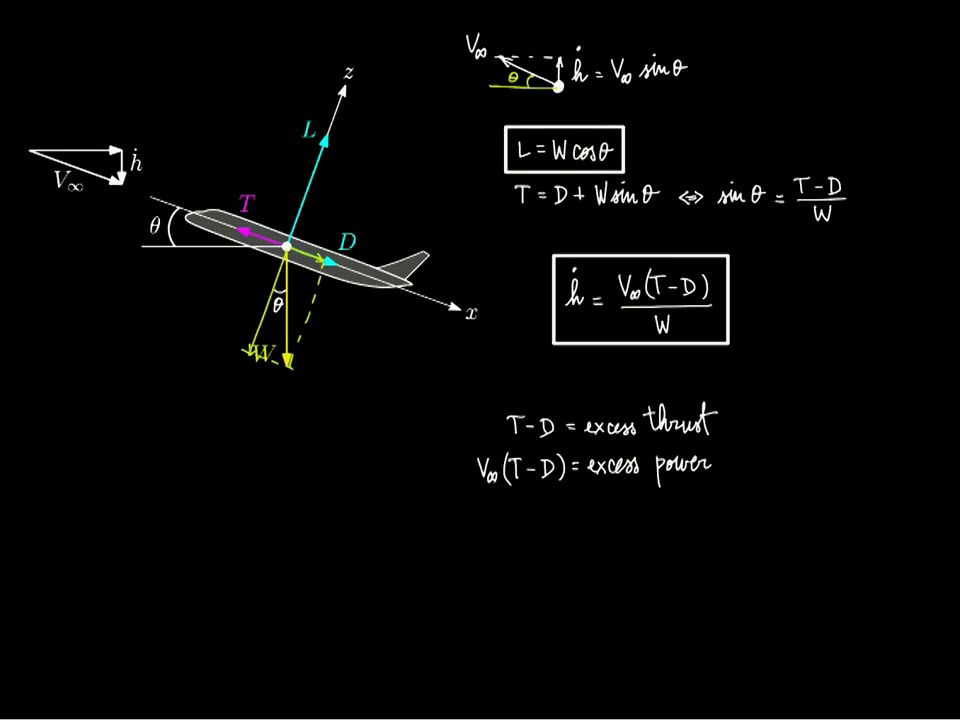 z
L
ḣ
V∞
T
θ
D
θ
x
W
V∞
θ
ḣ = V∞ sin θ
L = W cos θ
T = D + W sin θ ⇔ sin θ = (T-D)/W
ḣ = V∞(T-D)/W
T-D = excess thrust
V∞(T-D) = excess power